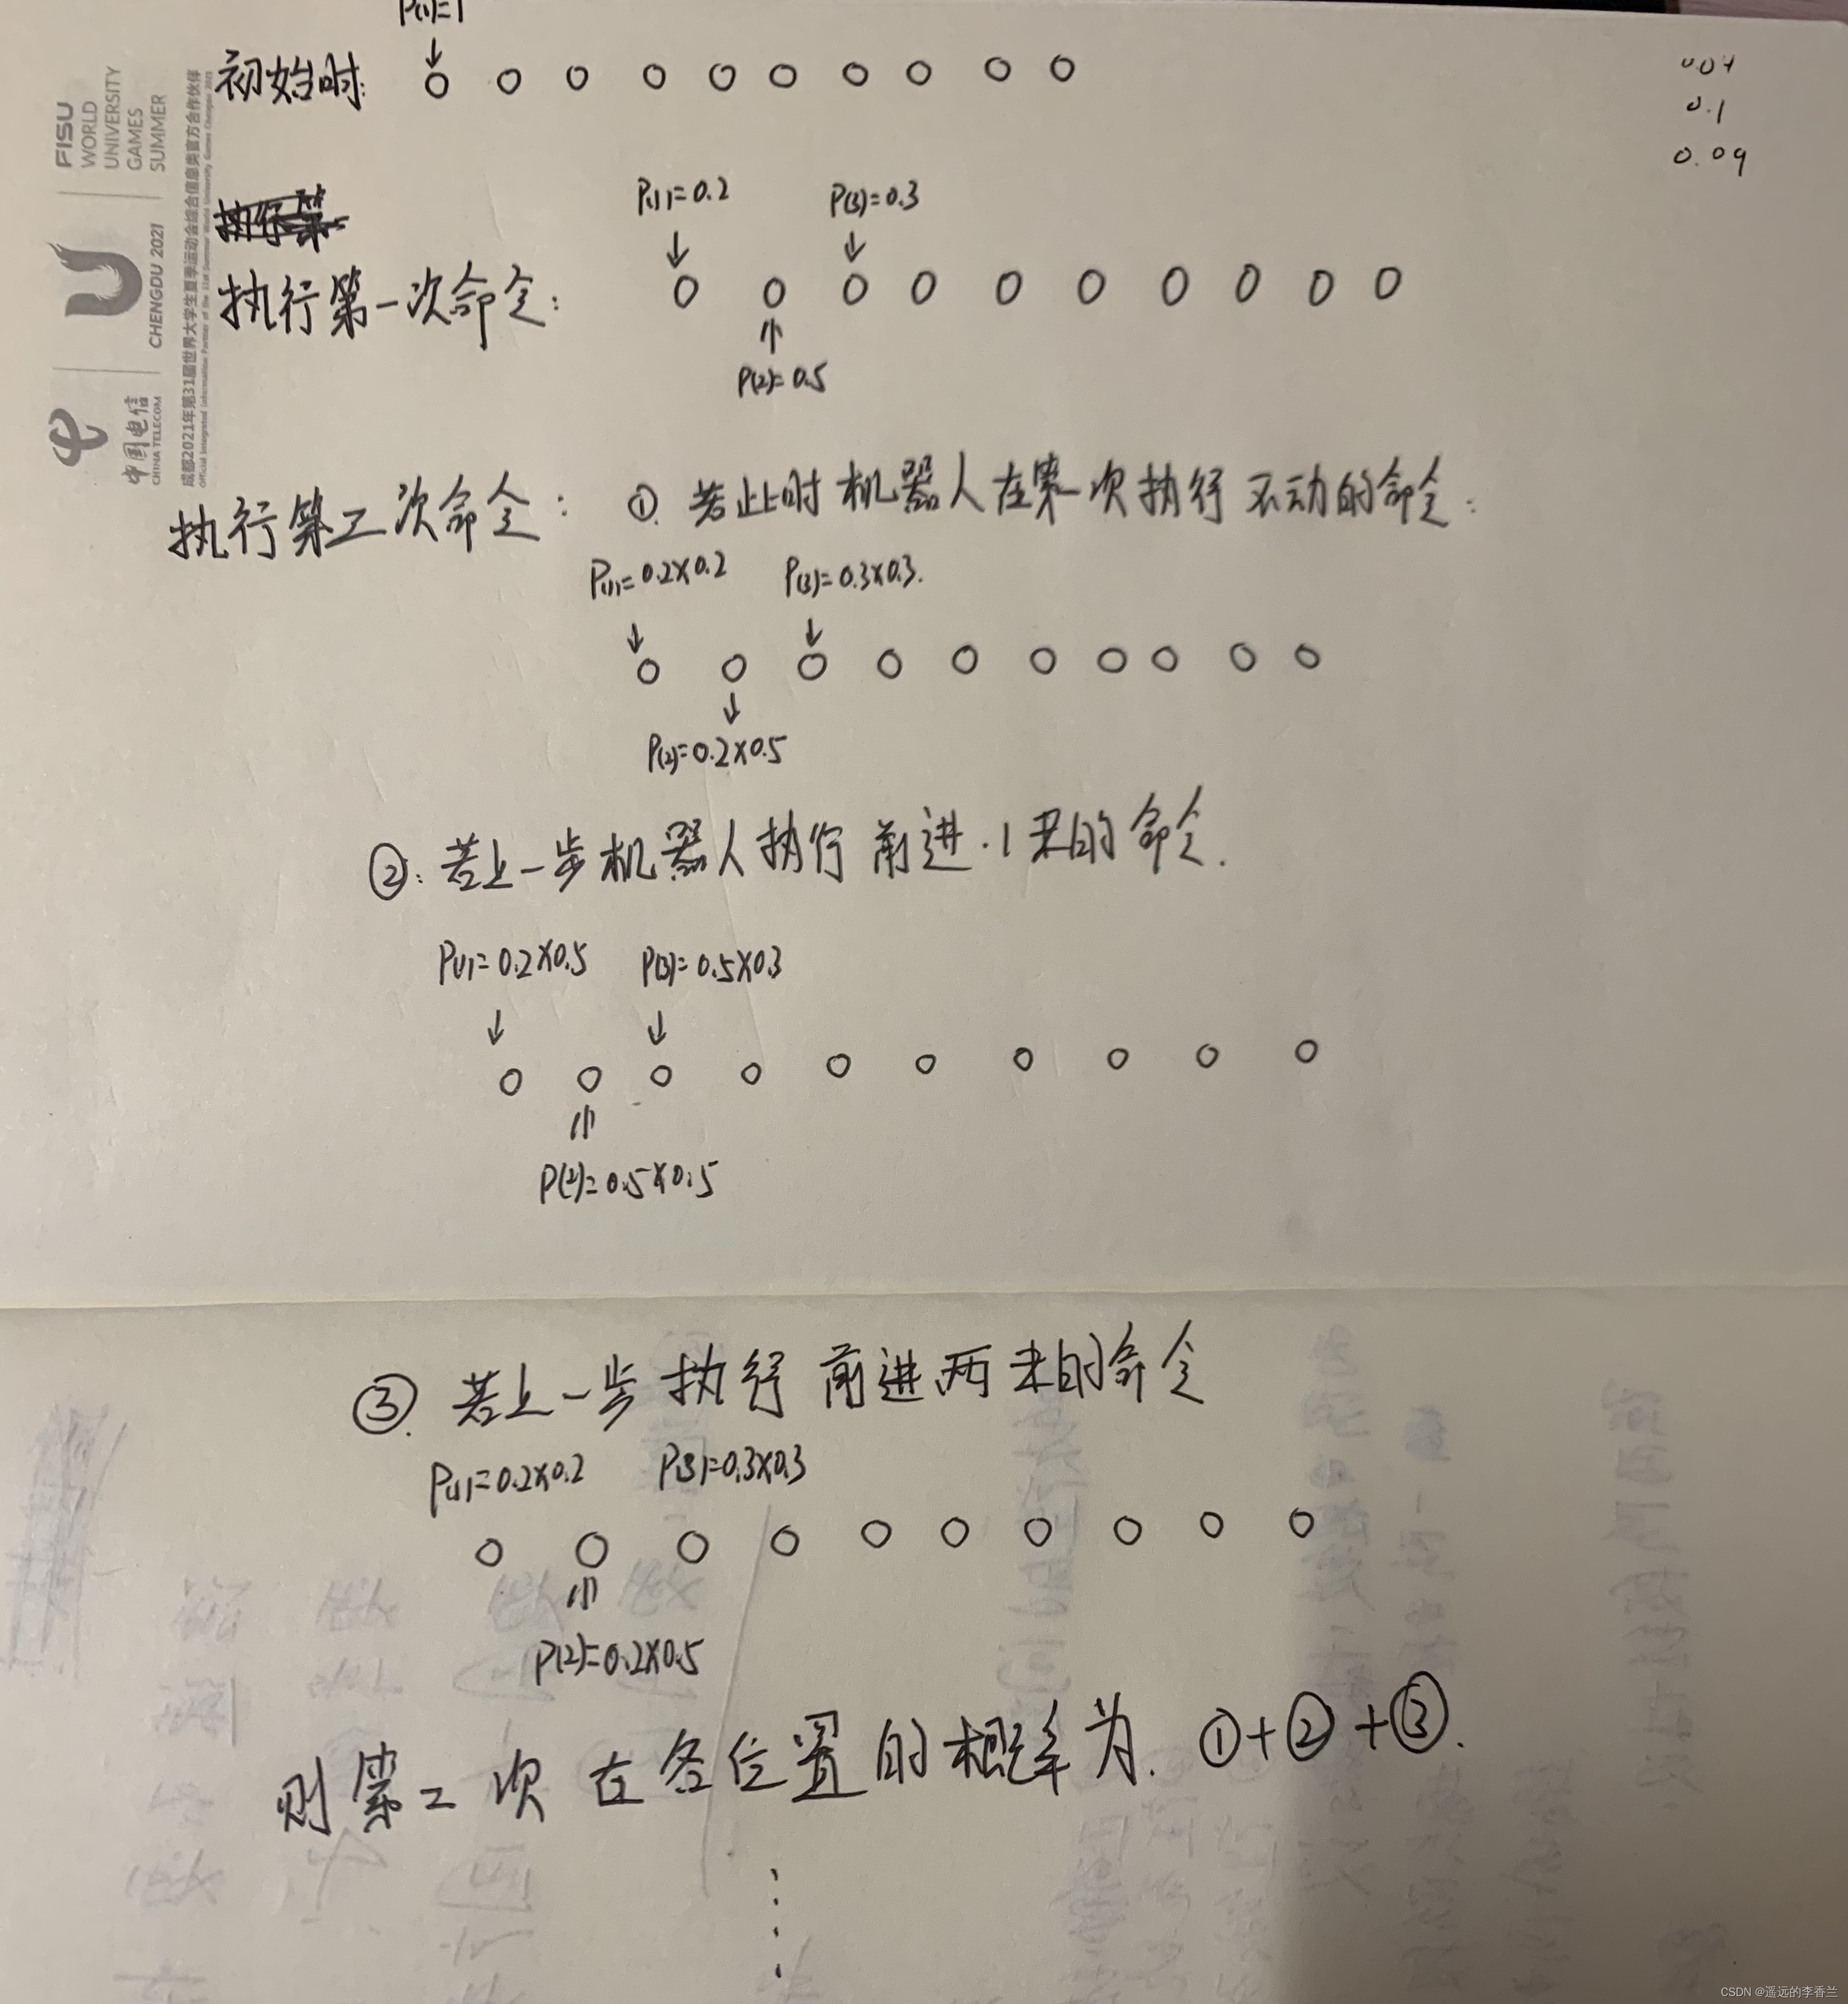 P(1)=1
初始时:
0.04
0.1
0.09
P(1)=0.2 P(3)=0.3
执行第一次命令:
P(2)=0.5
执行第二次命令: ①. 若此时机器人在第一次执行不动的命令:
P(1)=0.2×0.2 P(3)=0.3×0.3.
P(2)=0.2×0.5
②: 若上一步机器人执行前进.1米的命令.
P(1)=0.2×0.5 P(3)=0.5×0.3
P(2)=0.5×0.5
③. 若上一步执行前进两米的命令
P(1)=0.2×0.2 P(3)=0.3×0.3
P(2)=0.2×0.5
则第二次在各位置的概率为. ①+②+③.
FISU
WORLD
UNIVERSITY
GAMES
SUMMER
CHENGDU 2021
中国电信
CHINA TELECOM
成都2021年第31届世界大学生夏季运动会综合信息类官方合作伙伴
Official Integrated Information Partner of the 31st Summer World University Games Chengdu 2021
CSDN @遥远的李香兰